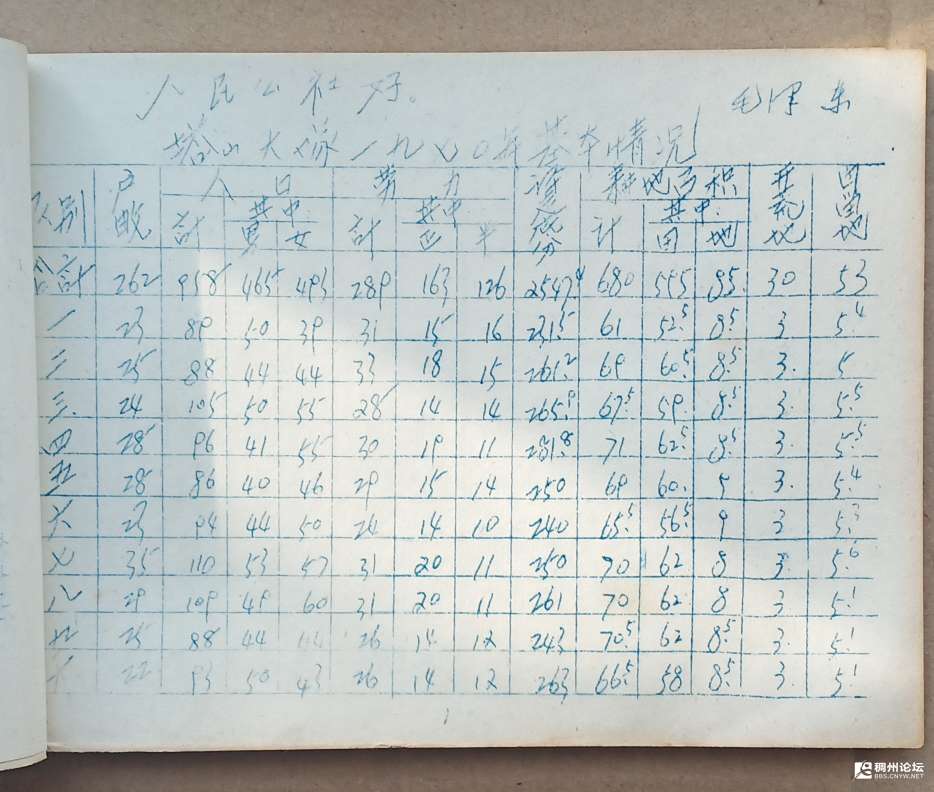 人民公社好。 毛泽东
塔山大队一九七〇年基本情况
队别 户 人口 劳力 耕地面积 开荒地 自留地
計 其中 計 其中 計 其中
男 女 正 半 田 地
合計 262 958 465 493 289 163 126 2547.4 680 595 85. 30 53
一 23 89 50 39 31 15 16 231.5 61 52.5 8.5 3. 5.4
二 25 88 44 44 33 18 15 261.2 69 60.5 8.5 3. 5
三. 24 105 50 55 28 14 14 265.9 67.5 59. 8.5 3. 5.5
四 28 96 41 55 30 19 11 281.8 71 62.5 8.5 3. 5.5
五 28 86 40 46 29 15 14 250 69 60. 9 3. 5.4
六 23 94 44 50 24 14 10 240 65.5 56.5 9 3 5.3
七 35 110 53 57 31 20 11 250 70 62 8 3 5.6
八 29 109 49 60 31 20 11 261 70 62 8 3 5.1
九 25 88 44 26 14 12 243 70.5 62 8.5 3. 5.1
十 22 93 50 43 26 14 12 263 66.5 58 8.5 3. 5.1
稠州论坛
BBS.CNYW.NET